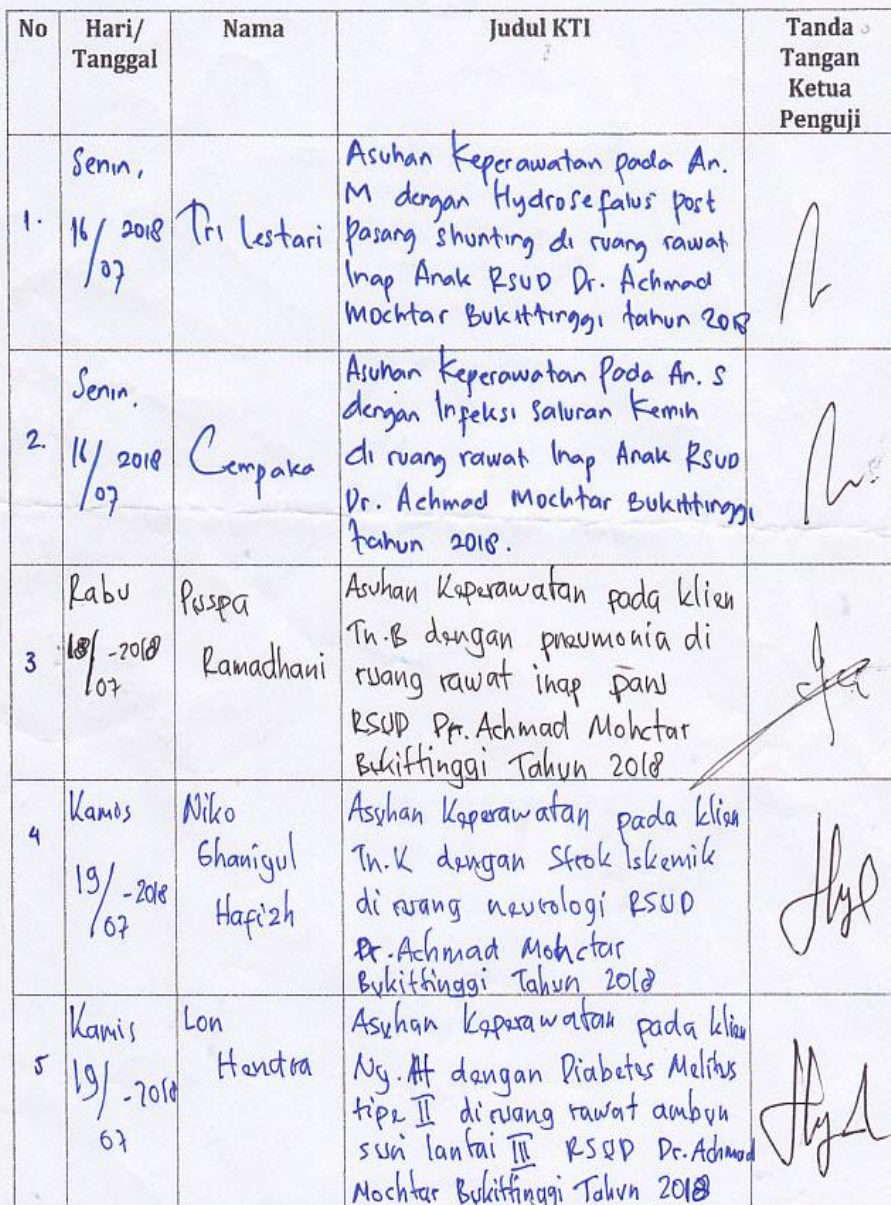 No Hari/ Tanggal Nama Judul KTI Tanda Tangan Ketua Penguji
1. Senin, 16/07 2018 Tri Lestari
Asuhan Keperawatan pada An.
M dengan Hydrosefalus post
pasang shunting di ruang rawat
Inap Anak RSUD Dr. Achmad
Mochtar Bukittinggi tahun 2018
2. Senin, 16/07 2018 Cempaka
Asuhan Keperawatan Pada An. S
dengan Infeksi Saluran Kemih
di ruang rawat Inap Anak RSUD
Dr. Achmad Mochtar Bukittinggi
tahun 2018.
3 Rabu 18/07 -2018 Puspa Ramadhani
Asuhan Keperawatan pada klien
Tn.B dengan pneumonia di
ruang rawat inap paru
RSUD Dr. Achmad Mohctar
Bukittinggi Tahun 2018
4 Kamis 19/07 -2018 Niko Ghanigul Hafizh
Asuhan Keperawatan pada klien
Tn.K dengan Strok Iskemik
di ruang neurologi RSUD
Dr. Achmad Mohctar
Bukittinggi Tahun 2018
5 Kamis 19/07 -2018 Lon Hendra
Asuhan Keperawatan pada klien
Ny. dengan Diabetes Melitus
tipe II di ruang rawat ambun
suri lantai III RSUD Dr. Achmad
Mochtar Bukittinggi Tahun 2018